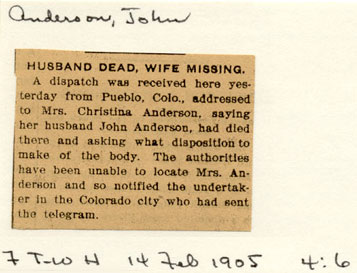 Anderson, John
HUSBAND DEAD, WIFE MISSING.
A dispatch was received here yes-
terday from Pueblo, Colo., addressed
to Mrs. Christina Anderson, saying
her husband John Anderson, had died
there and asking what disposition to
make of the body. The authorities
have been unable to locate Mrs. An-
derson and so notified the undertak-
er in the Colorado city who had sent
the telegram.
7 T-W H 14 Feb 1905 4:6